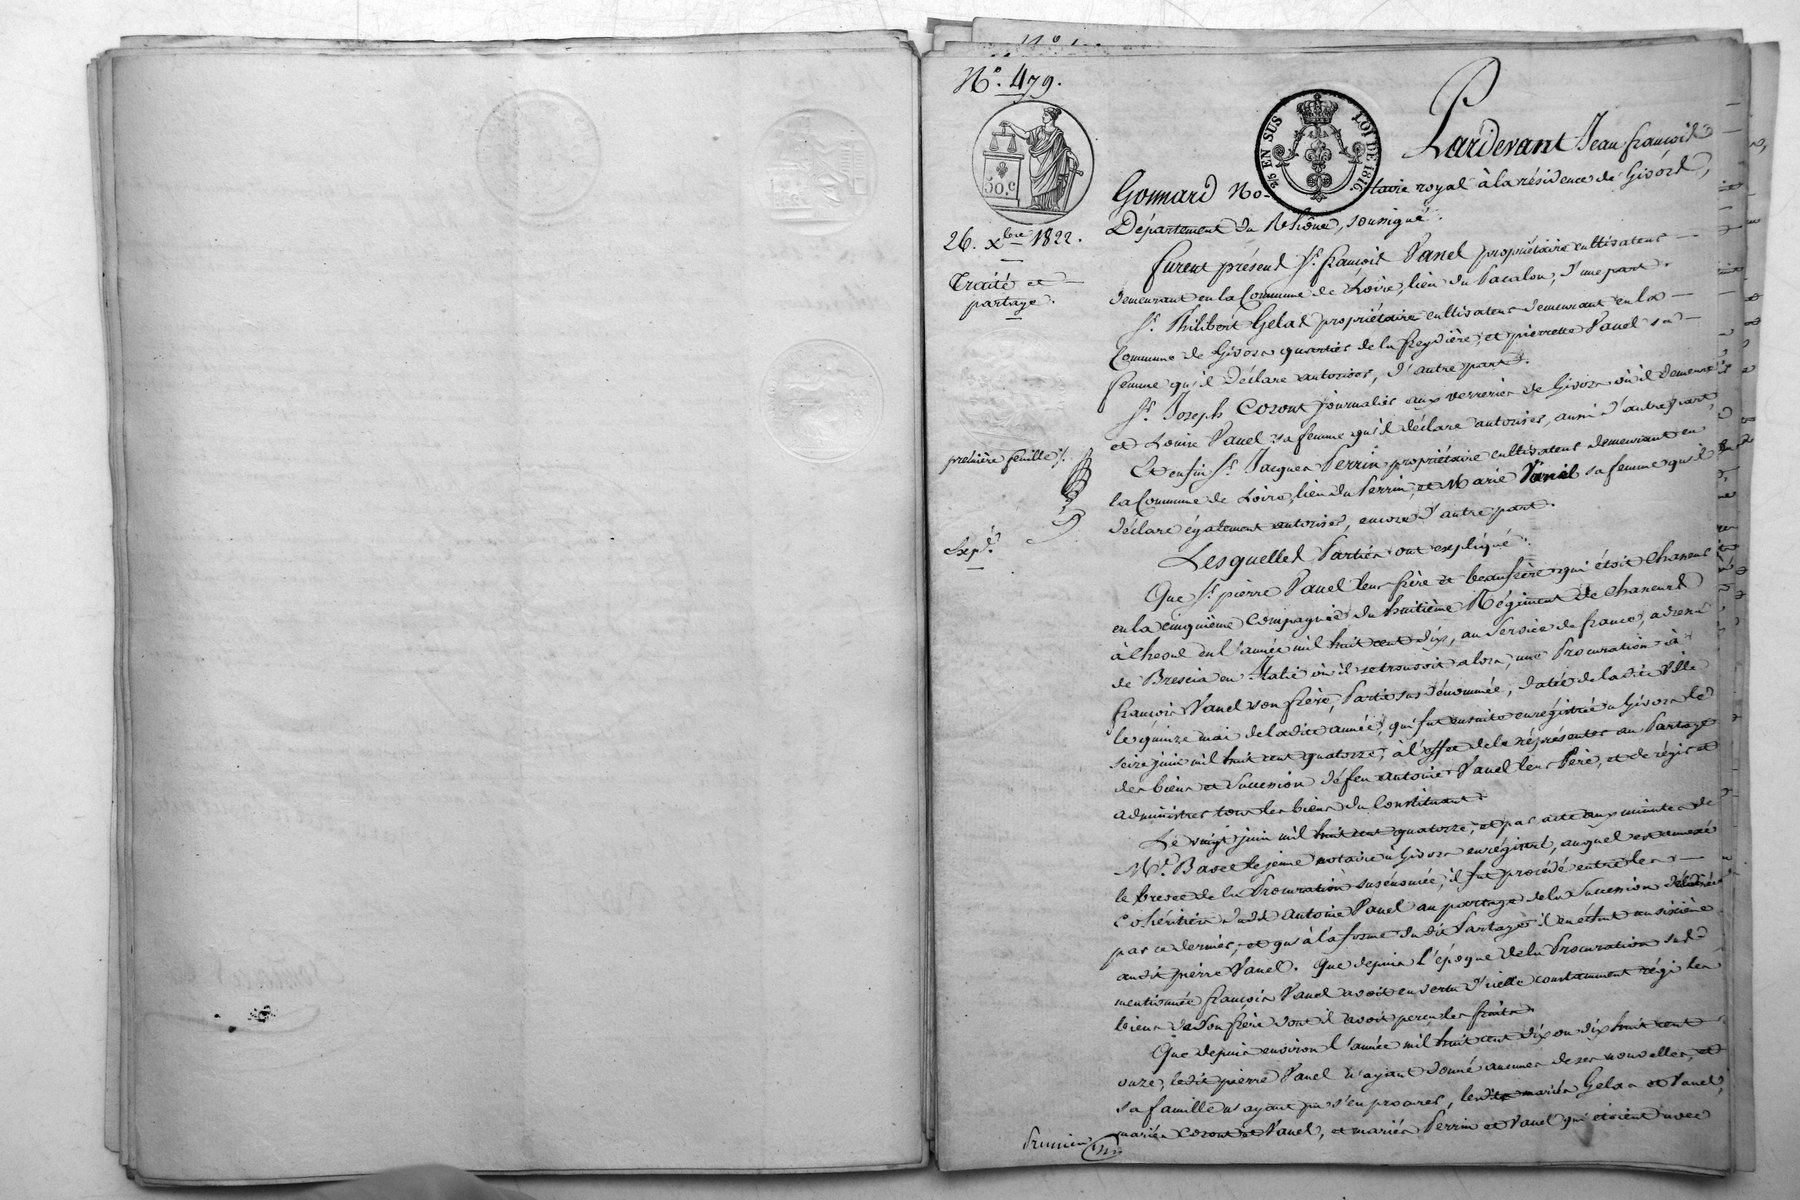 N.° 479.
50.C
2/5 EN SUS LOI DE 1816
26. Xbre 1822.
Traité et
partage.
première feuille
Exp.é
Pardevant Jean françois
Gonnard Notaire royal à la résidence de Givors,
Département du Rhône, soussigné.
furent présens S.r françois Vanel propriétaire cultivateur
demeurant en la Commune de Loire, lieu du Pacalon, d'une part.
S.r Philibert Gelas propriétaire cultivateur demeurant en la
Commune de Givors quartier de la freydière, et pierrette Vanel sa
femme qu'il déclare autoriser, d'autre part.
S.r Joseph Coront journalier aux verreries de Givors où il demeure
et Louise Vanel sa femme qu'il déclare autoriser, aussi d'autre part,
Et enfin S.r Jacques Perrin propriétaire cultivateur demeurant en
la Commune de Loire, lieu du Perrin, et Marie Vanel sa femme qu'il
déclare également autoriser, encore d'autre part.
Lesquelles Parties ont expliqué
Que S.r pierre Vanel leur frère et beaufrère qui étoit chasseur
en la cinquième compagnie du huitième Régiment de chasseurs
à cheval en l'année mil huit cent dix, au service de france, adressa
de Brescia en Italie où il se trouvoit alors, une Procuration à
françois Vanel son frère, Partie sus dénommée, datée de la dite Ville
le quinze mai de la dite année, qui fut ensuite enregistrée à Givors le
seize juin mil huit cent quatorze, à l'effet de le représenter au Partage
des biens et succession de feu antoine Vanel leur Père, et de régir et
administrer tous les biens du Constituant.
Le vingt juin mil huit cent quatorze, et par acte aux minutes de
M.e le jeune notaire à Givors enregistré, auquel est annexé
le brevet de la Procuration susénoncée, il fut procédé entre les
Cohéritiers dudit antoine Vanel au partage de la succession délaissée
par ce dernier, et qu'à la forme du dit Partage il en échut un sixième
audit pierre Vanel. Que depuis l'époque de la Procuration sus
mentionnée françois Vanel avoit en vertu d'icelle constamment régi les
biens de son frère dont il avoit perçu les fruits.
Que depuis environ l'année mil huit cent dix ou dix huit cent
onze, ledit pierre Vanel n'ayant donné aucunes de ses nouvelles, et
sa famille n'ayant pu s'en procurer, lesdits mariés Gelas et Vanel,
mariés Coront et Vanel, et mariés Perrin et Vanel qui étoient avec